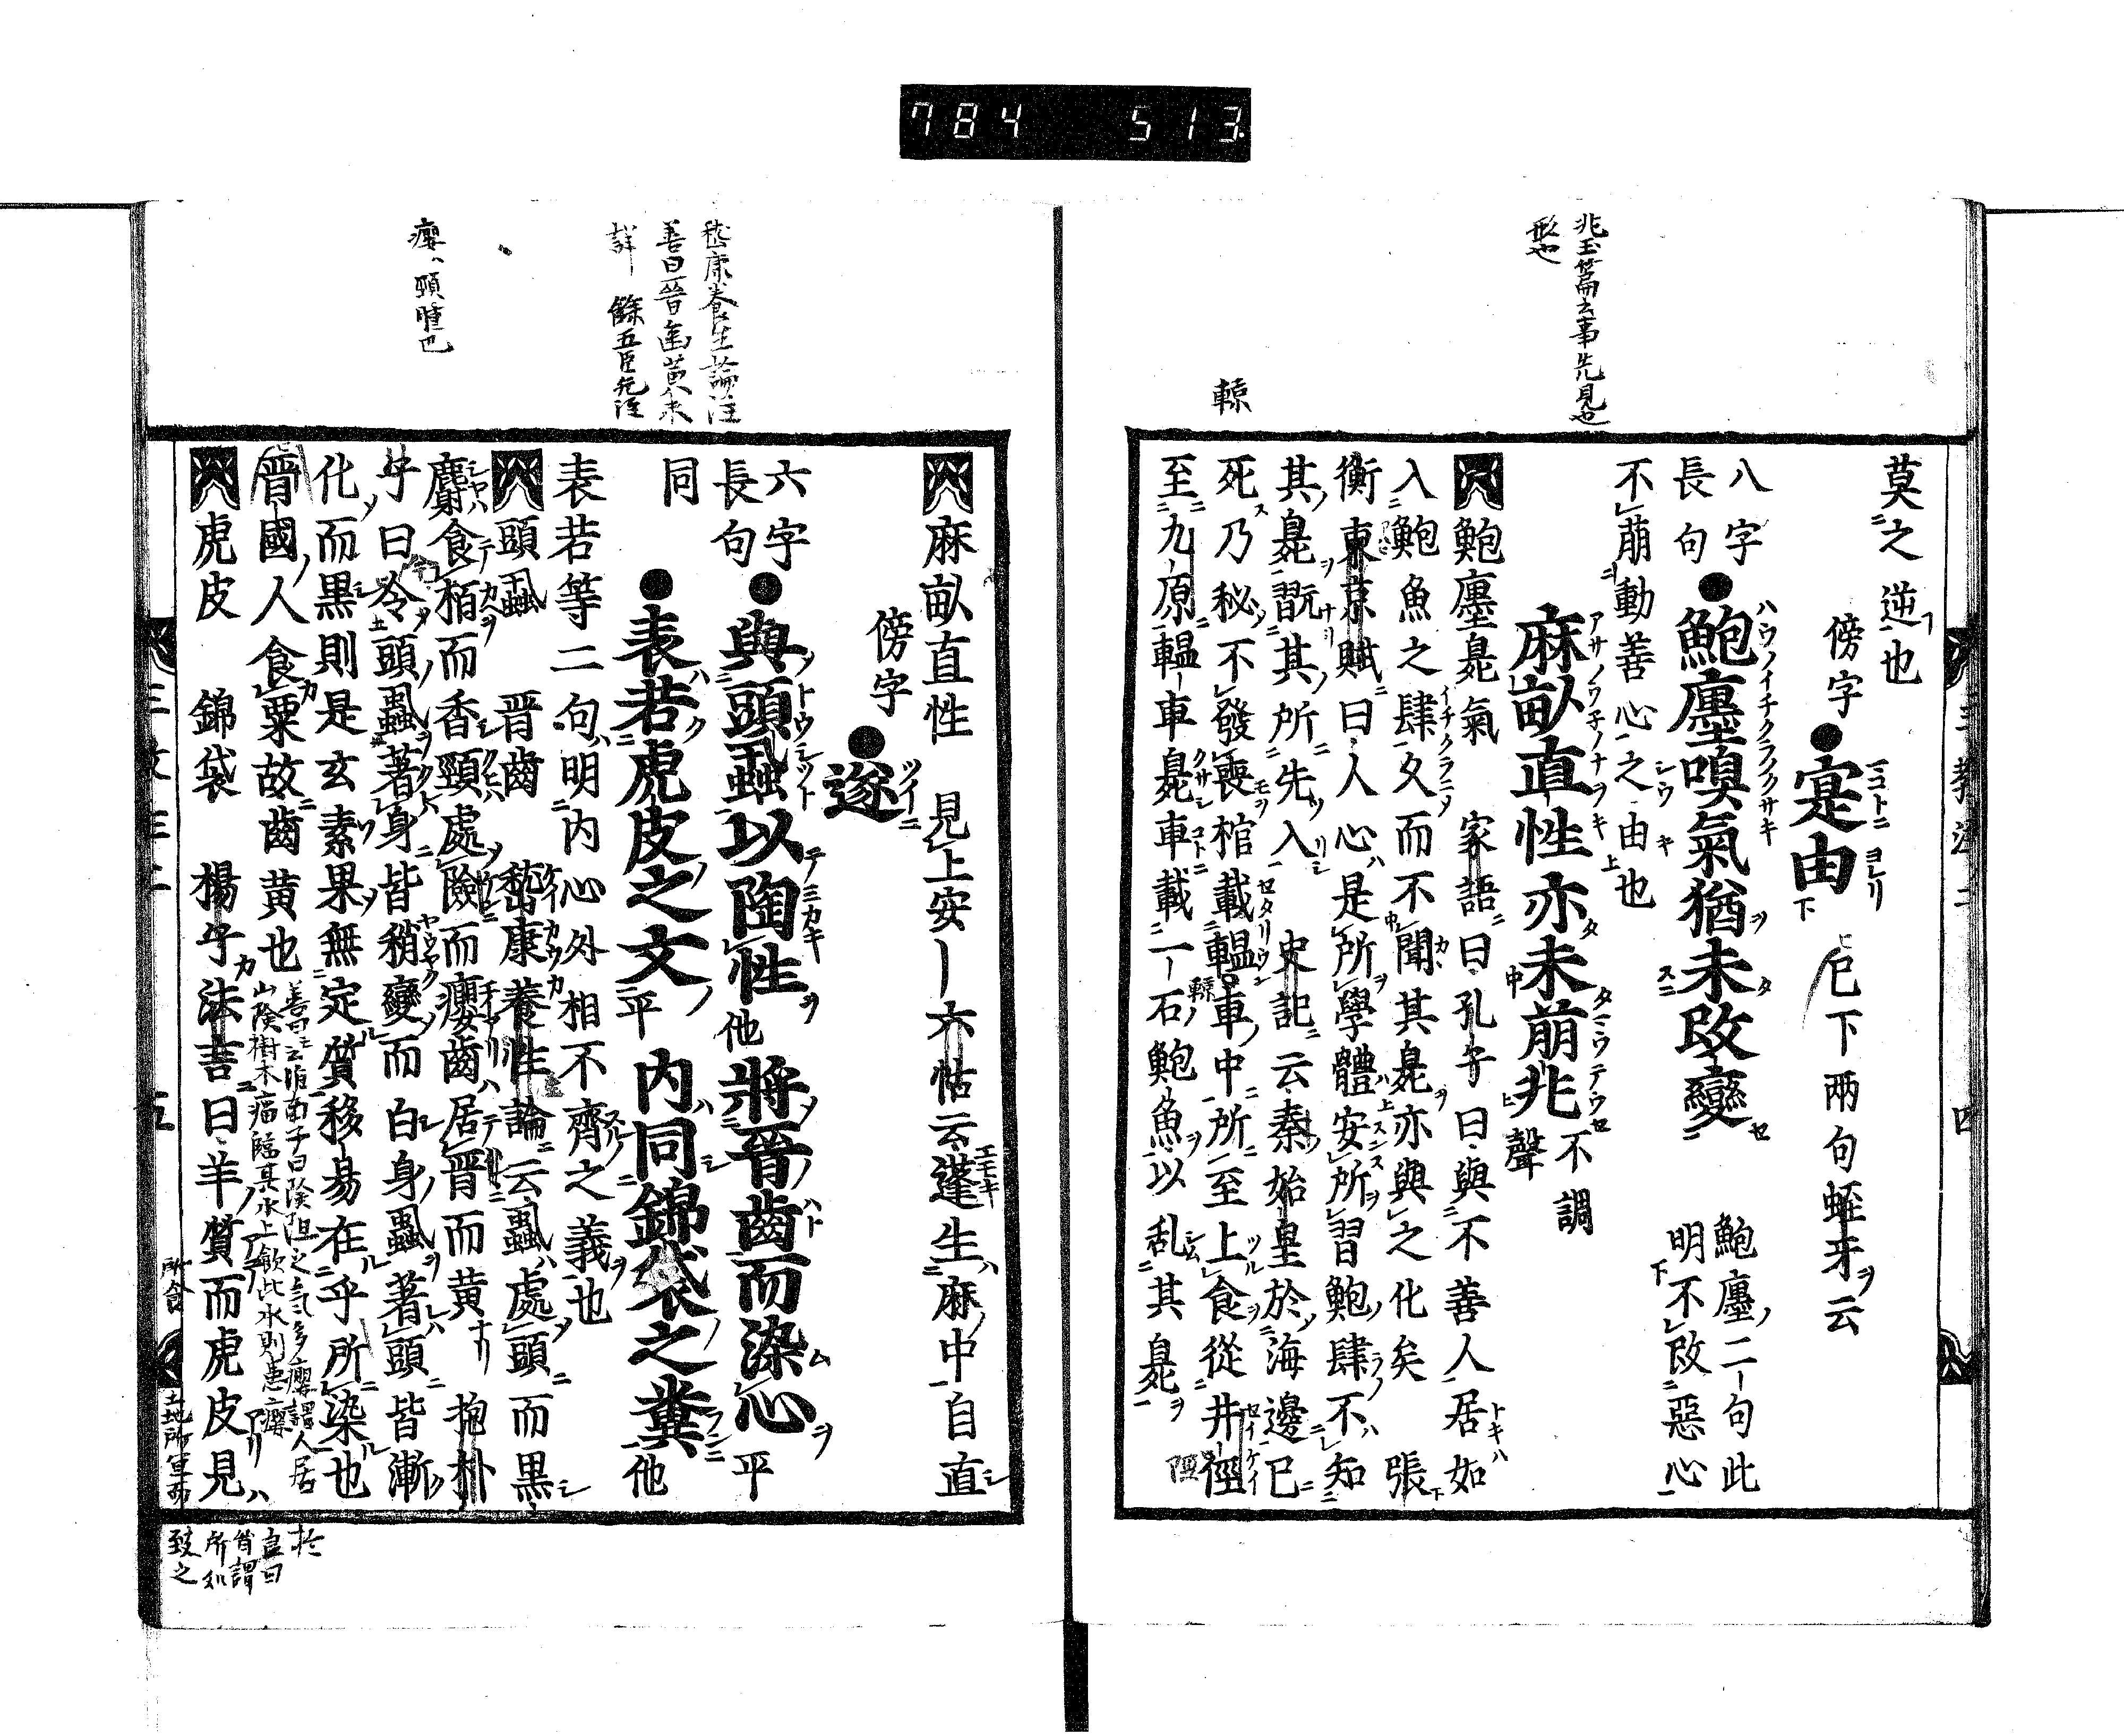 784 513
兆玉篇云事先見也
形也
轅
莫之逆也
傍字●寔由 已下兩句蛭牙云
八字
長句●鮑廛嗅氣猶未改變 鮑廛二句此
明不改惡心
不萠動善心之由也
麻畝直性亦未萠兆 不調
聲
鮑廛臰氣 家語曰孔子曰與不善人居如
入鮑魚之肆久而不聞其臰亦與之化矣 張
衡東京賦曰人心是所學體安所習鮑肆不知
其臰翫其所先入 史記云秦始皇於海邊已
死乃秘不發喪棺載轀車中所至上食從井徑
至九原轀車臰車載一石鮑魚以乱其臰
三教注二 四
嵆康養生論注
善曰晉齒黃未
詳 餘五臣無注
癭頸腫也
麻畝直性 見上安六帖云蓬生麻中自直
傍字●遂
六字
長句●與頭虱以陶性他將晉齒而染心平
同●表若虎皮之文平 内同錦袋之糞他
表若等二句明内心外相不齊之義也
頭虱 晋齒 嵆康養性論云虱處頭而黒
麝食栢而香頸處險而癭齒居晋而黄 抱朴
子曰今頭虱著身皆稍變而白身虱著頭皆漸
化而黒則是玄素果無定質移易在乎所染也
晋國人食粟故齒黄也
善曰淮南子曰險阻之氣多癭謂人居
山險樹木瘤臨其水上飲此水則患癭
虎皮 錦袋 楊子法言曰羊質而虎皮見
五